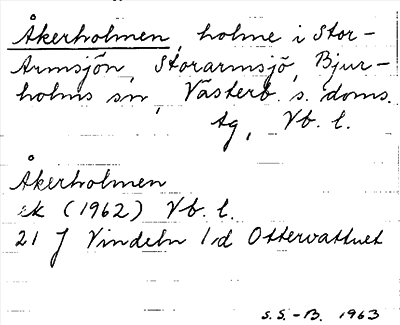 Åkerholmen, holme i Stor-
Armsjön, Storarmsjö, Bjur-
holms sn, Västerb. s. doms.
tg, Vb. l.
Åkerholmen
ek (1962) Vb. l.
21 J Vindeln 1d Ottervattnet
S.S.-B. 1963